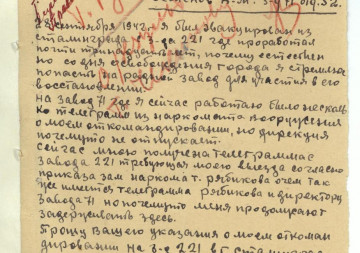 з-д 71 отд. 52.
22 сентября 1942 г я был эвакуирован из
сталинграда з-да 221 где проработал
почти тринадцать лет, почему естествен
но со дня освобождения города я стремлюсь
попасть на родной завод для участия в его
восстановлении.
на завод 71 где я сейчас работаю было несколь
ко телеграмм из наркомата вооружения
о моем откомандировании, но дирекция
почему то не отпускает.
сейчас мною получена телеграмма с
завода 221 требующая моего выезда согласно
приказа зам наркомат. рябикова о чем так
же имеется телеграмма рябикова и директору
завода 71 но почему то меня продолжают
задерживать здесь.
Прошу Вашего указания о моем откоман
дировании на з-д 221 в г Сталинград